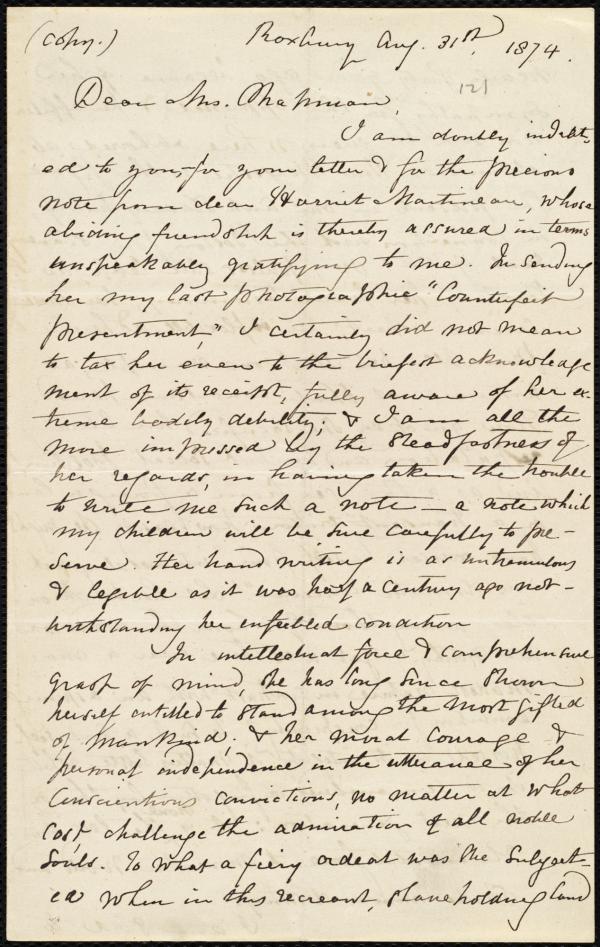 (copy.) Roxbury Aug. 31st, 1874.
121
Dear Mrs. Chapman,
I am doubly indebt-
ed to you, for your letter & for the precious
note from dear Harriet Martineau, whose
abiding friendship is thereby assured in terms
unspeakably gratifying to me. In sending
her my last photographic "Counterfeit
presentment," I certainly did not mean
to tax her even to the briefest acknowledge
ment of its receipt, fully aware of her ex-
treme bodily debility; & I am all the
more impressed by the steadfastness of
her regards, in having taken the trouble
to write me such a note — a note which
my children will be sure carefully to pre-
serve. Her hand writing is as untremulous
& legible as it was half a century ago not-
withstanding her enfeebled condition
In intellectual force & comprehensive
grasp of mind, she has long since shown
herself entitled to stand among the most gifted
of mankind; & her moral courage &
personal independence in the utterance of her
conscientious convictions, no matter at what
cost, challenge the admiration of all noble
souls. To what a fiery ordeal was she subject-
ed when in this recreant, slaveholding land